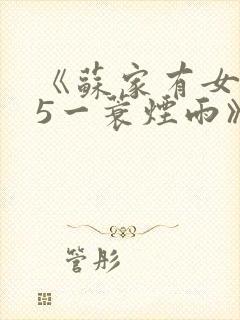 《蘇家有女
5一蓑煙雨》
管彤